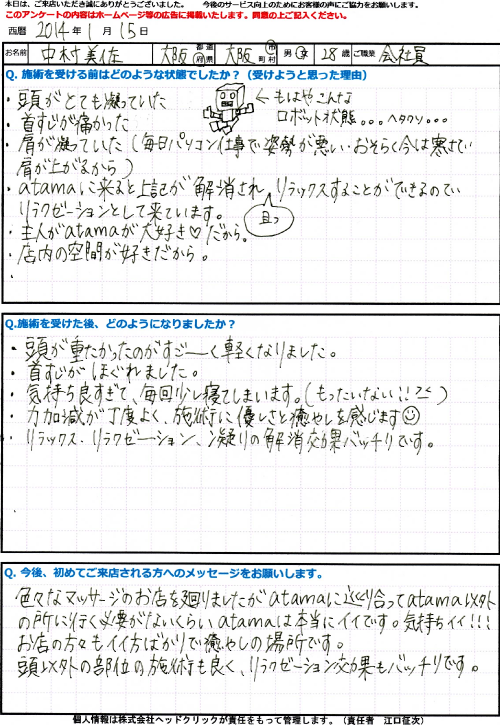 本日は、ご来店いただき誠にありがとうございました。 今後のサービス向上のためにお客様の声にご協力をお願いします。
このアンケートの内容はホームページ等の広告に掲載いたします。同意の上ご記入ください。
西暦 2014年 1月 15日
お名前 中村美佐 大阪 都道府県 大阪 市町村 男・女 28歳 ご職業 会社員
Q. 施術を受ける前はどのような状態でしたか？（受けようと思った理由）
・頭がとても凝っていた
←もはやこんな
ロボット状態。。。ヘタクソ...
・首すじが痛かった
・肩が凝っていた（毎日パソコン仕事で姿勢が悪い・おそらく今は寒さで
肩が上がるから）
・atamaに来ると上記が解消され、リラックスすることができるので
リラクゼーションとして来ています。
且つ
・主人がatamaが大好き♡だから。
・店内の空間が好きだから。
・
Q.施術を受けた後、どのようになりましたか？
・頭が重たかったのがすご――く軽くなりました。
・首すじがほぐれました。
・気持ち良すぎて、毎回少し寝てしまいます。（もったいない!!）
・力加減が丁度よく、施術に優しさと癒やしを感じます☺
・リラックス、リラクゼーション、凝りの解消効果バッチリです。
Q. 今後、初めてご来店される方へのメッセージをお願いします。
色々なマッサージのお店を廻りましたがatamaに巡り合ってatama以外
の所に行く必要がないくらいatamaは本当にイイです。気持ちイイ!!!
お店の方々もイイ方ばかりで癒やしの場所です。
頭以外の部位の施術も良く、リラクゼーション効果もバッチリです。
個人情報は株式会社ヘッドクリックが責任をもって管理します。（責任者 江口征次）